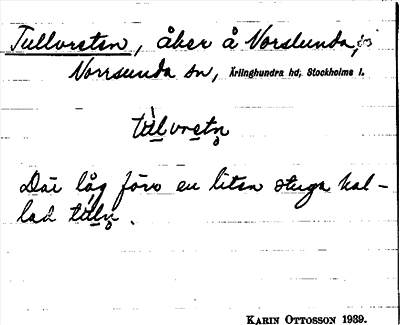 Tullvreten, åker å Norslunda,
Norrsunda sn, Ärlinghundra hd, Stockholms l.
tu̇lvretn̥
Där låg förr en liten stuga kal-
lad tu̇ln̥.
KARIN OTTOSSON 1939.